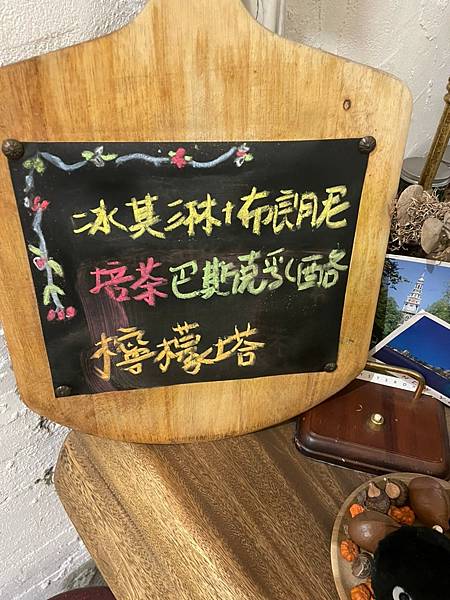 冰淇淋+布朗尼
培茶巴斯克乳酪
檸檬塔